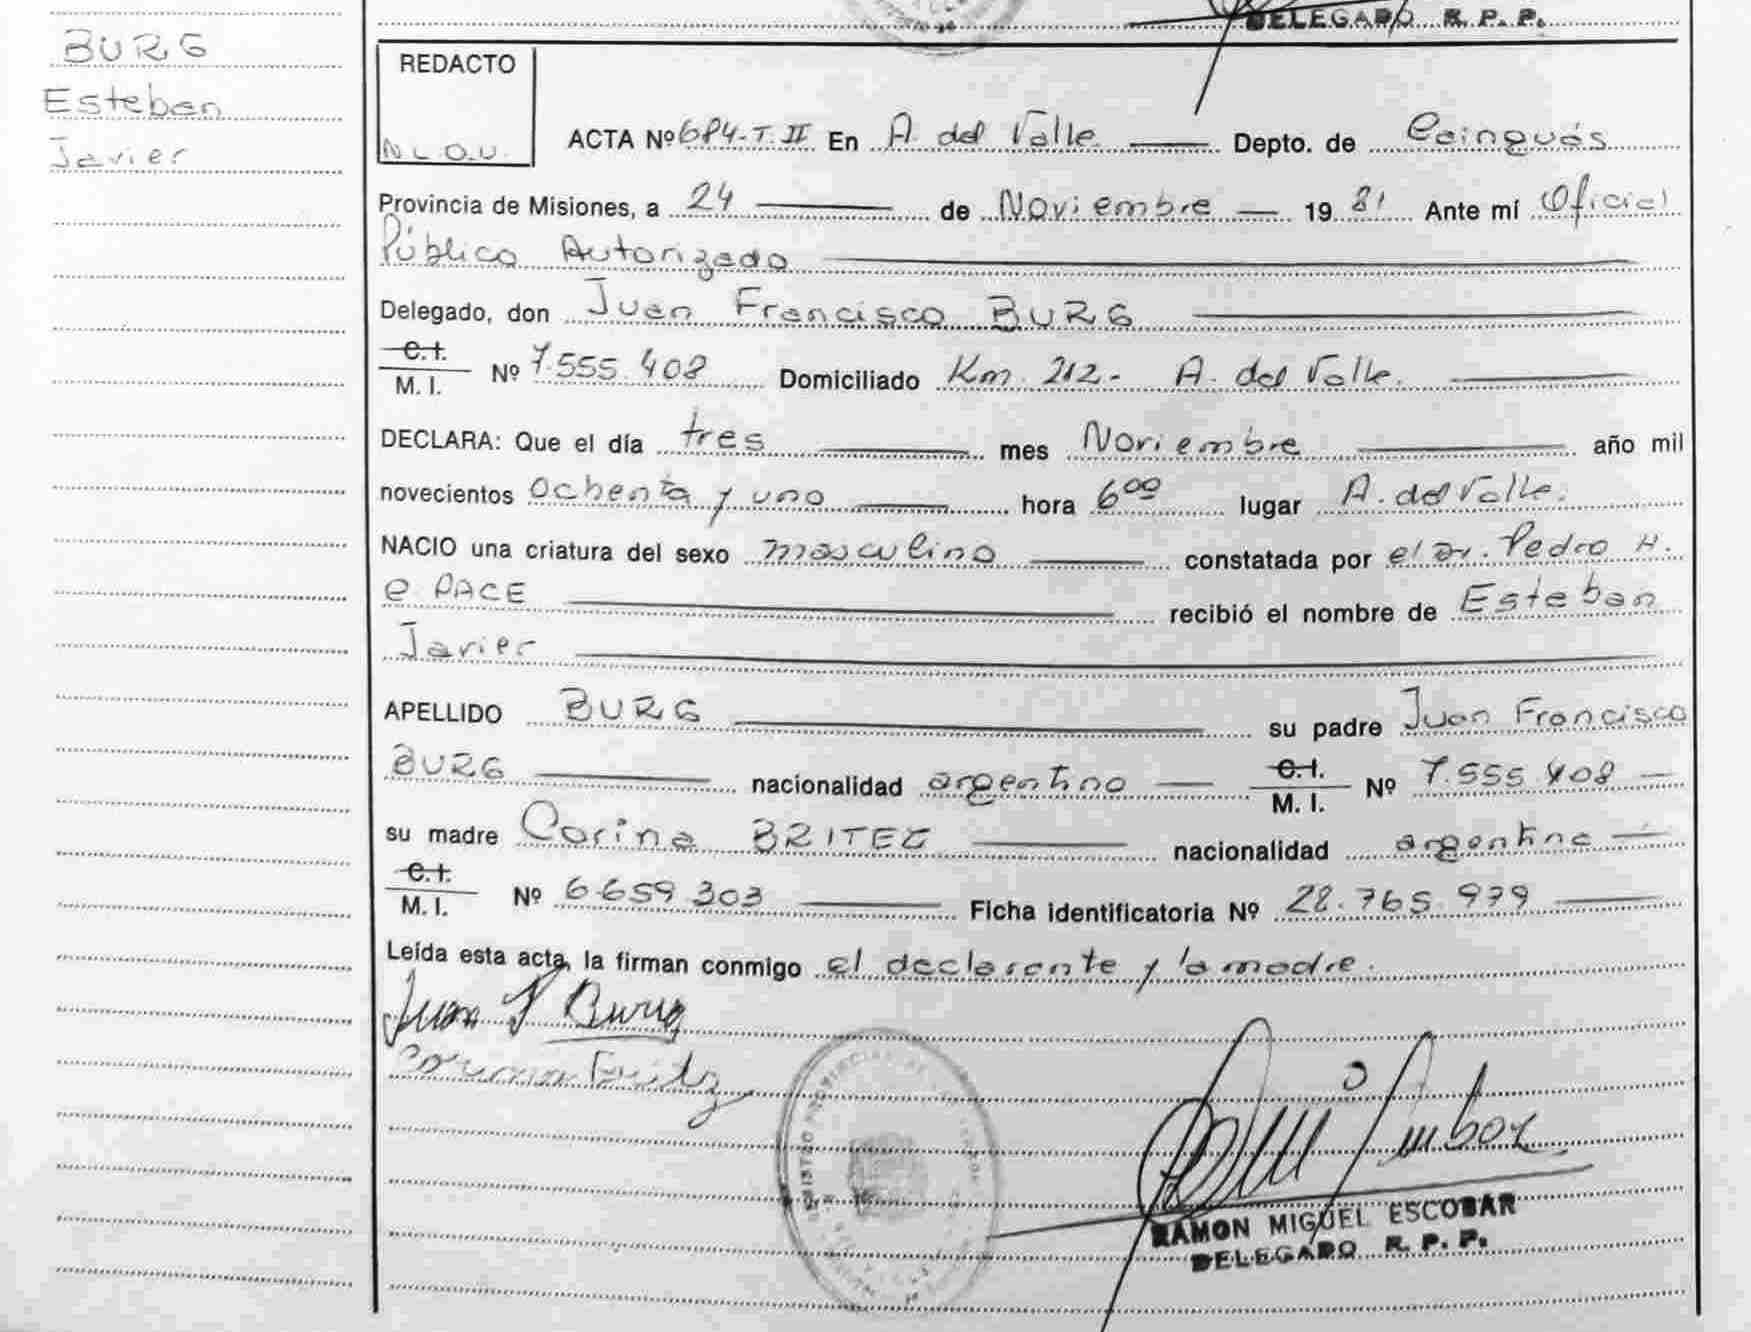 DELEGADO R. P. P.
BURG
Esteban
Javier
REDACTO
N L O U.
ACTA Nº 684-T. II En A. del Valle Depto. de Cainguás
Provincia de Misiones, a 24 de Noviembre 19 81 Ante mí Oficial
Público Autorizado
Delegado, don Juan Francisco BURG
C.I.
M. I. Nº 7.555.408 Domiciliado Km. 212- A. del Valle.
DECLARA: Que el día tres mes Noviembre año mil
novecientos ochenta y uno hora 6⁰⁰ lugar A. del Valle.
NACIO una criatura del sexo masculino constatada por el Dr. Pedro H.
e PACE recibió el nombre de Esteban
Javier
APELLIDO BURG su padre Juan Francisco
BURG nacionalidad argentino C.I. M. I. Nº 7.555.408
su madre Corina BRITEZ nacionalidad argentina
C.I.
M. I. Nº 6.659.303 Ficha identificatoria Nº 28.765.979
Leída esta acta, la firman conmigo el declarante y la madre.
Juan F Burg
RAMON MIGUEL ESCOBAR
DELEGADO R. P. P.